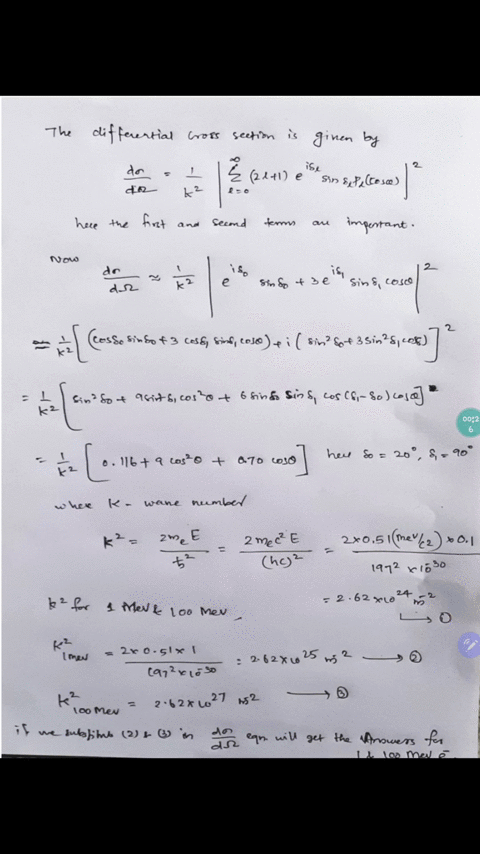 The differential cross section is given by
dσ/dΩ = 1/k² | ∞ Σ l=0 (2l+1) e^iδl sin δl Pl(cosθ) |²
here the first and second terms are important.
Now
dσ/dΩ ≈ 1/k² | e^iδ0 sin δ0 + 3 e^iδ1 sin δ1 cosθ |²
= 1/k² [ (cosδ0 sinδ0 + 3 cosδ1 sinδ1 cosθ) + i ( sin²δ0 + 3 sin²δ1 cosθ) ]²
= 1/k² [ sin²δ0 + 9 sin²δ1 cos²θ + 6 sinδ0 sin δ1 cos (δ1 - δ0) cosθ ]
= 1/k² [ 0.116 + 9 cos²θ + 0.70 cosθ ] here δ0 = 20°, δ1 = 90°
where K - wave number
K² = 2meE/ħ² = 2mec²E/(ħc)² = 2×0.51(mev/c2)×0.1/197²×10^-30
= 2.62×10^24 m^-2 → ①
k² for 1 Mev & 100 Mev,
K² 1mev = 2×0.51×1/197²×10^-30 = 2.62×10^25 m^-2 → ②
K² 100 Mev = 2.62×10^27 m^-2 → ③
if we substitute (2) & (3) in dσ/dΩ eqn will get the Answers for
1 & 100 Mev e⁻